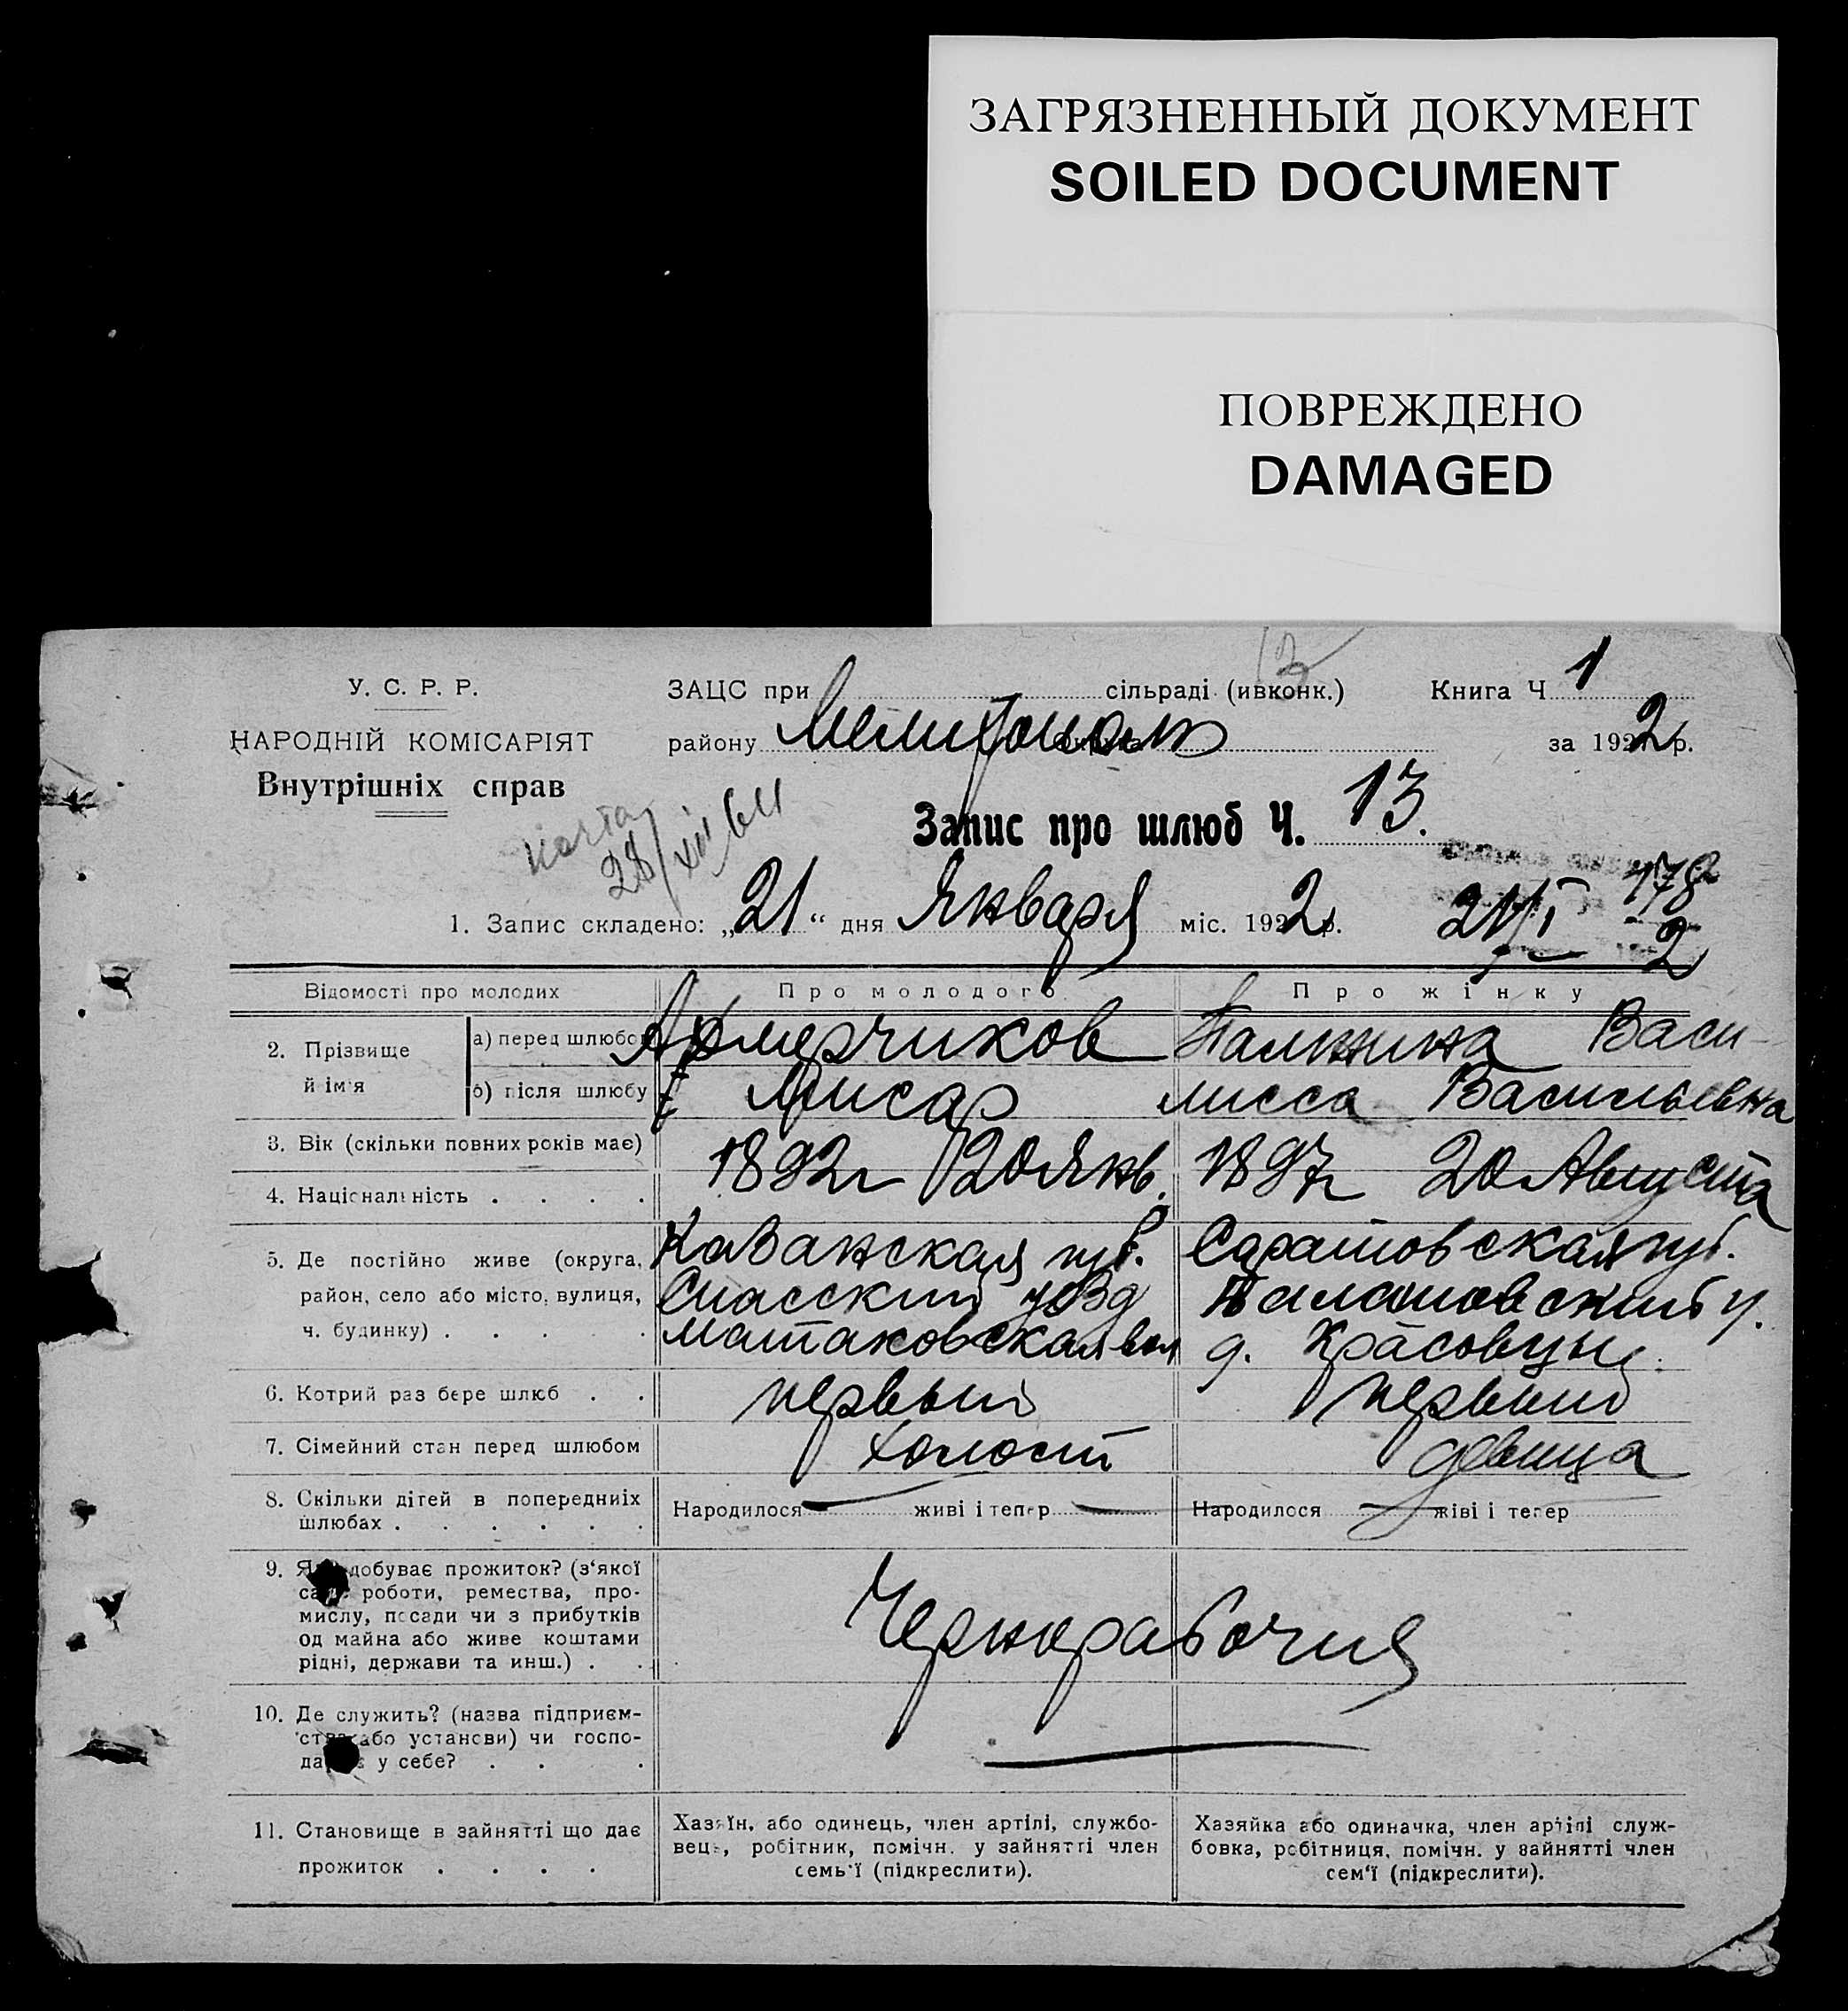 ЗАГРЯЗНЕННЫЙ ДОКУМЕНТ
SOILED DOCUMENT
ПОВРЕЖДЕНО
DAMAGED
13
У. С. Р. Р.
НАРОДНІЙ КОМІСАРІЯТ
Внутрішніх справ
ЗАЦС при сільраді (ивконк.) Книга Ч 1
району Мелитополь за 1922 р.
28/XII 64
Запис про шлюб Ч. 13.
1. Запис складено: „21“ дня Января міс. 1922 р. 21/I
178
2
Відомості про молодих Про молодого Про жінку
2. Прізвище й ім'я
а) перед шлюбом
б) після шлюбу
Васи-
лисса Васильевна
3. Вік (скільки повних років має)
4. Національність . . . .
1892 г 20 Янв. 1897 г 20 Августа
5. Де постійно живе (округа,
район, село або місто, вулиця,
ч. будинку) . . . . .
Казанская губ. Саратовская губ.
Спасский уезд у.
Матаковская вол д.
6. Котрий раз бере шлюб . . первый первый
7. Сімейний стан перед шлюбом холост девица
8. Скільки дітей в попередніх
шлюбах . . . . . .
Народилося — живі і тепер — Народилося — живі і тепер
9. Як добуває прожиток? (з'якої
саме роботи, ремества, про-
мислу, посади чи з прибутків
од майна або живе коштами
рідні, держави та инш.) . .
Чернорабочия
10. Де служить? (назва підприєм-
ства або установи) чи госпо-
дарює у себе? . . .
—
11. Становище в зайнятті що дає
прожиток . . . .
Хазяїн, або одинець, член артілі, службо-
вець, робітник, помічн. у зайнятті член
семь'ї (підкреслити).
Хазяйка або одиначка, член артілі служ-
бовка, робітниця, помічн. у зайнятті член
сем'ї (підкреслити).